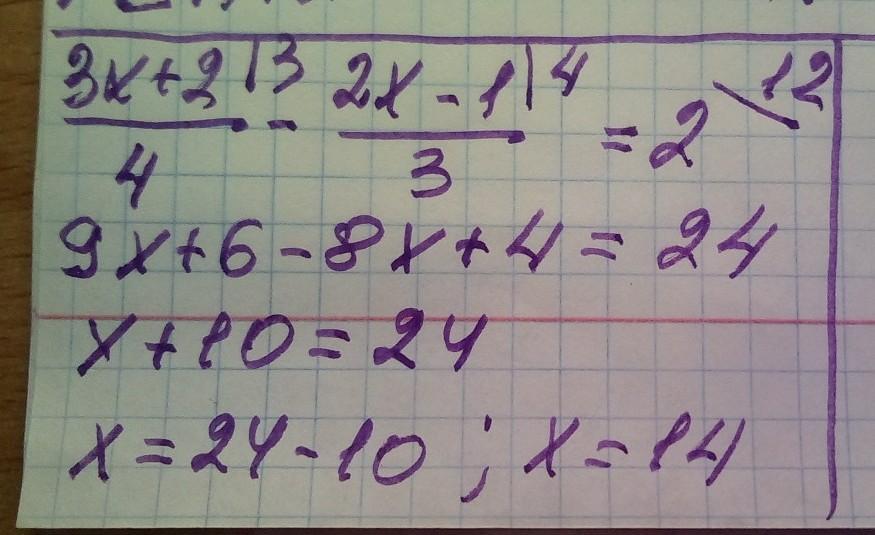 (3x+2)/4 |3 - (2x-1)/3 |4 = 2 \12
9x+6-8x+4=24
x+10=24
x=24-10; x=14